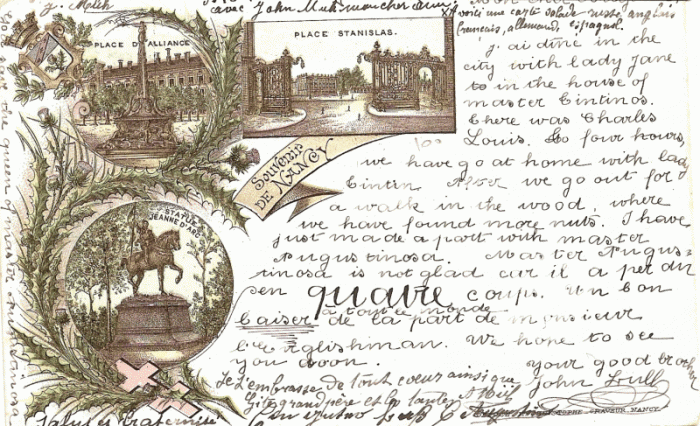 avec John
PLACE D'ALLIANCE
PLACE STANISLAS.
voici une carte salade russe anglais
français, allemand, espagnol.
j. ai diné in the
city with lady Jane
to in the house of
master Tintinos.
There was Charles
Louis. To four hours,
we have go at home with lady
Tintin. After we go out for
a walk in the wood, where
we have found more nuts. I have
just made a part with master
Augustinosa. Master Augus-
tinosa is not glad car il a perdu
en quatre coups. Un bon
baiser à tout le monde
de la part de monsieur
l'Englishman. We hope to see
you soon. your good brother
John Bull
SOUVENIR
DE NANCY
STATUE
JEANNE D'ARC
Je t'embrasse de tout coeur ainsi que
grand père et la tante
Salut et fraternité
GRAVEUR NANCY.
the queen of master